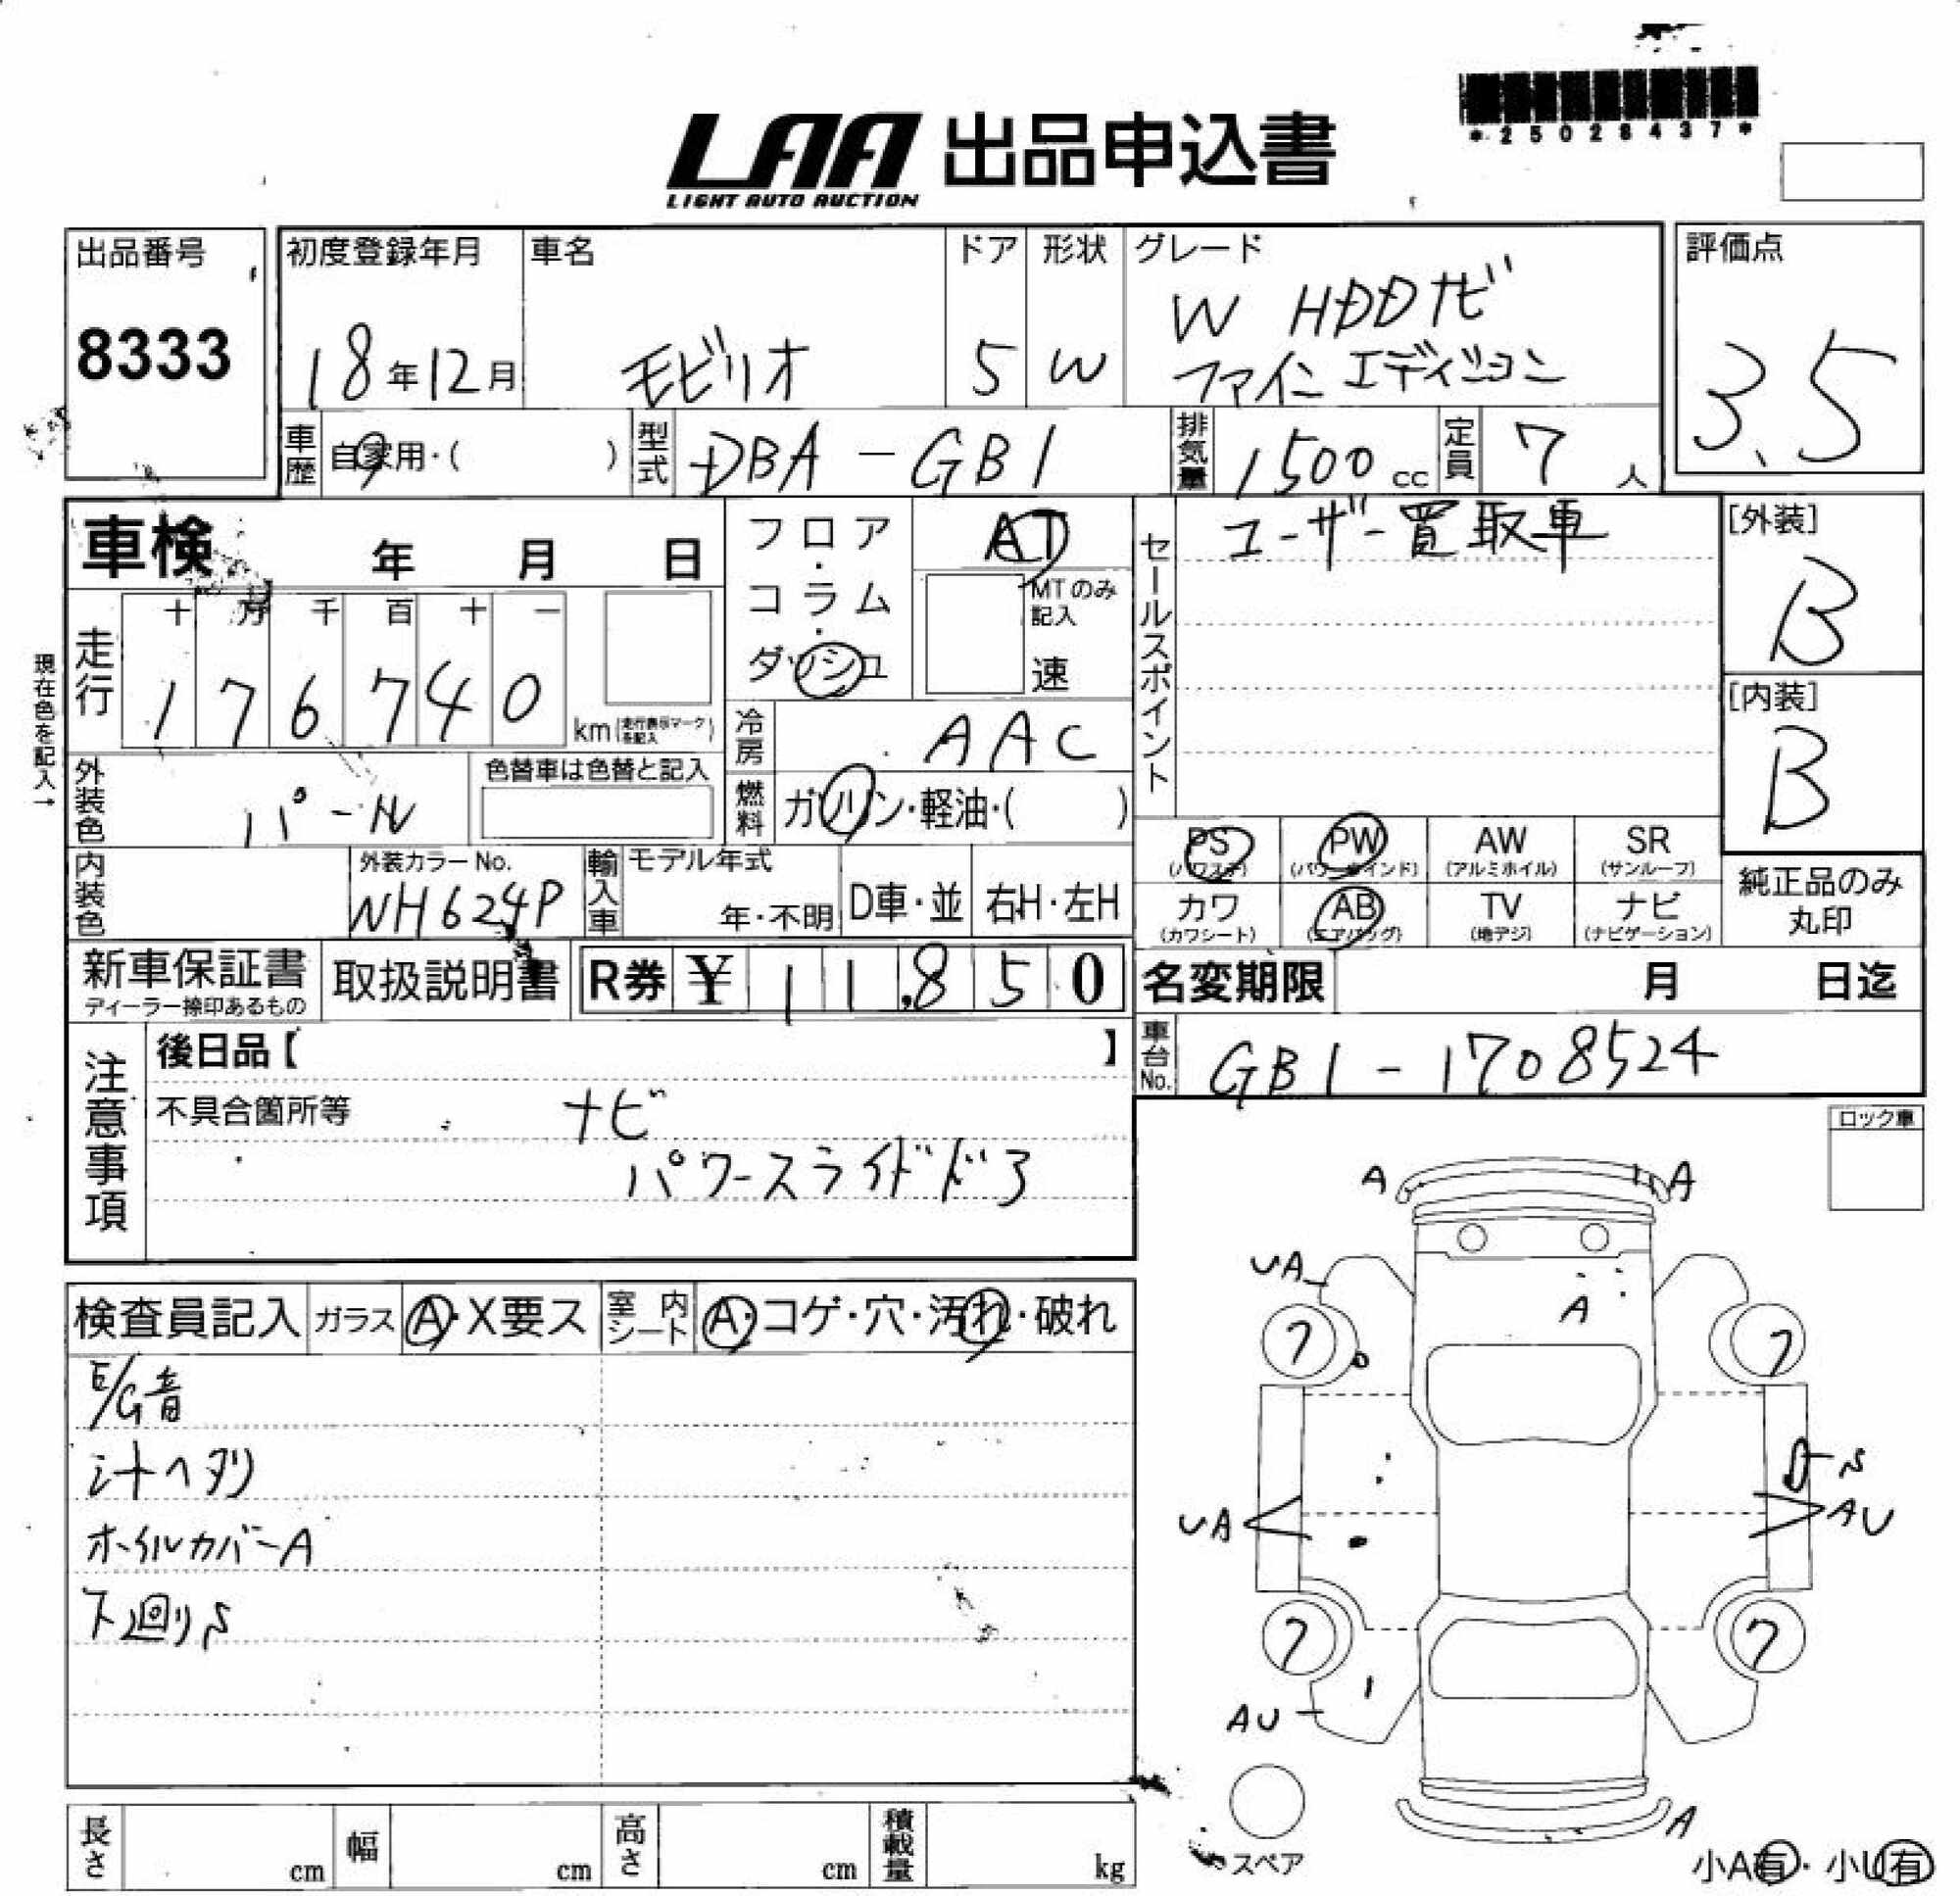 *25028437*
LAA 出品申込書
LIGHT AUTO AUCTION
出品番号
8333
初度登録年月
18年12月
車名
モビリオ
ドア
5
形状
W
グレード
W HDDナビ
ファインエディション
評価点
3.5
車歴
自家用・( )
型式
DBA-GB1
排気量
1500 cc
定員
7人
車検 年 月 日
フロア・コラム・ダッシュ
AT
MTのみ記入
速
セールスポイント
ユーザー買取車
[外装]
B
[内装]
B
現在色を記入→
走行
十万千百十一
176740
km(走行表示マークを記入)
冷房
AAC
燃料
ガソリン・軽油・( )
外装色
パール
色替車は色替と記入
内装色
外装カラーNo.
NH624P
輸入車
モデル年式
年・不明
D車・並
右H・左H
PS
(パワステ)
PW
(パワーウインド)
AW
(アルミホイル)
SR
(サンルーフ)
カワ
(カワシート)
AB
(エアバッグ)
TV
(地デジ)
ナビ
(ナビゲーション)
純正品のみ
丸印
新車保証書
ディーラー捺印あるもの
取扱説明書
R券 ¥ 11,850
名変期限 月 日迄
車台No.
GB1-1708524
注意事項
後日品【 】
不具合箇所等
ナビ
パワースライドドア
ロック車
検査員記入
ガラス
A・X要ス
室内シート
A・コゲ・穴・汚れ・破れ
E/G音
シートヘタリ
ホイルカバーA
下廻りS
A
A
UA
A
7
7
S
UA
AU
7
7
AU
A
スペア
小A有・小U有
長さ cm
幅 cm
高さ cm
積載量 kg